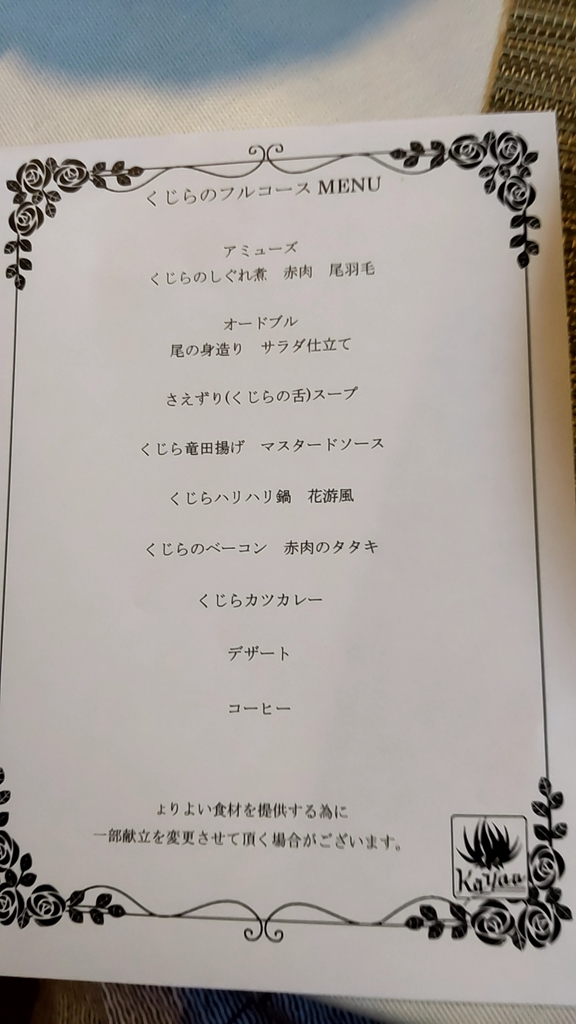 くじらのフルコース MENU
アミューズ
くじらのしぐれ煮　赤肉　尾羽毛
オードブル
尾の身造り　サラダ仕立て
さえずり(くじらの舌)スープ
くじら竜田揚げ　マスタードソース
くじらハリハリ鍋　花游風
くじらのベーコン　赤肉のタタキ
くじらカツカレー
デザート
コーヒー
ょりよい食材を提供する為に
一部献立を変更させて頂く場合がございます。